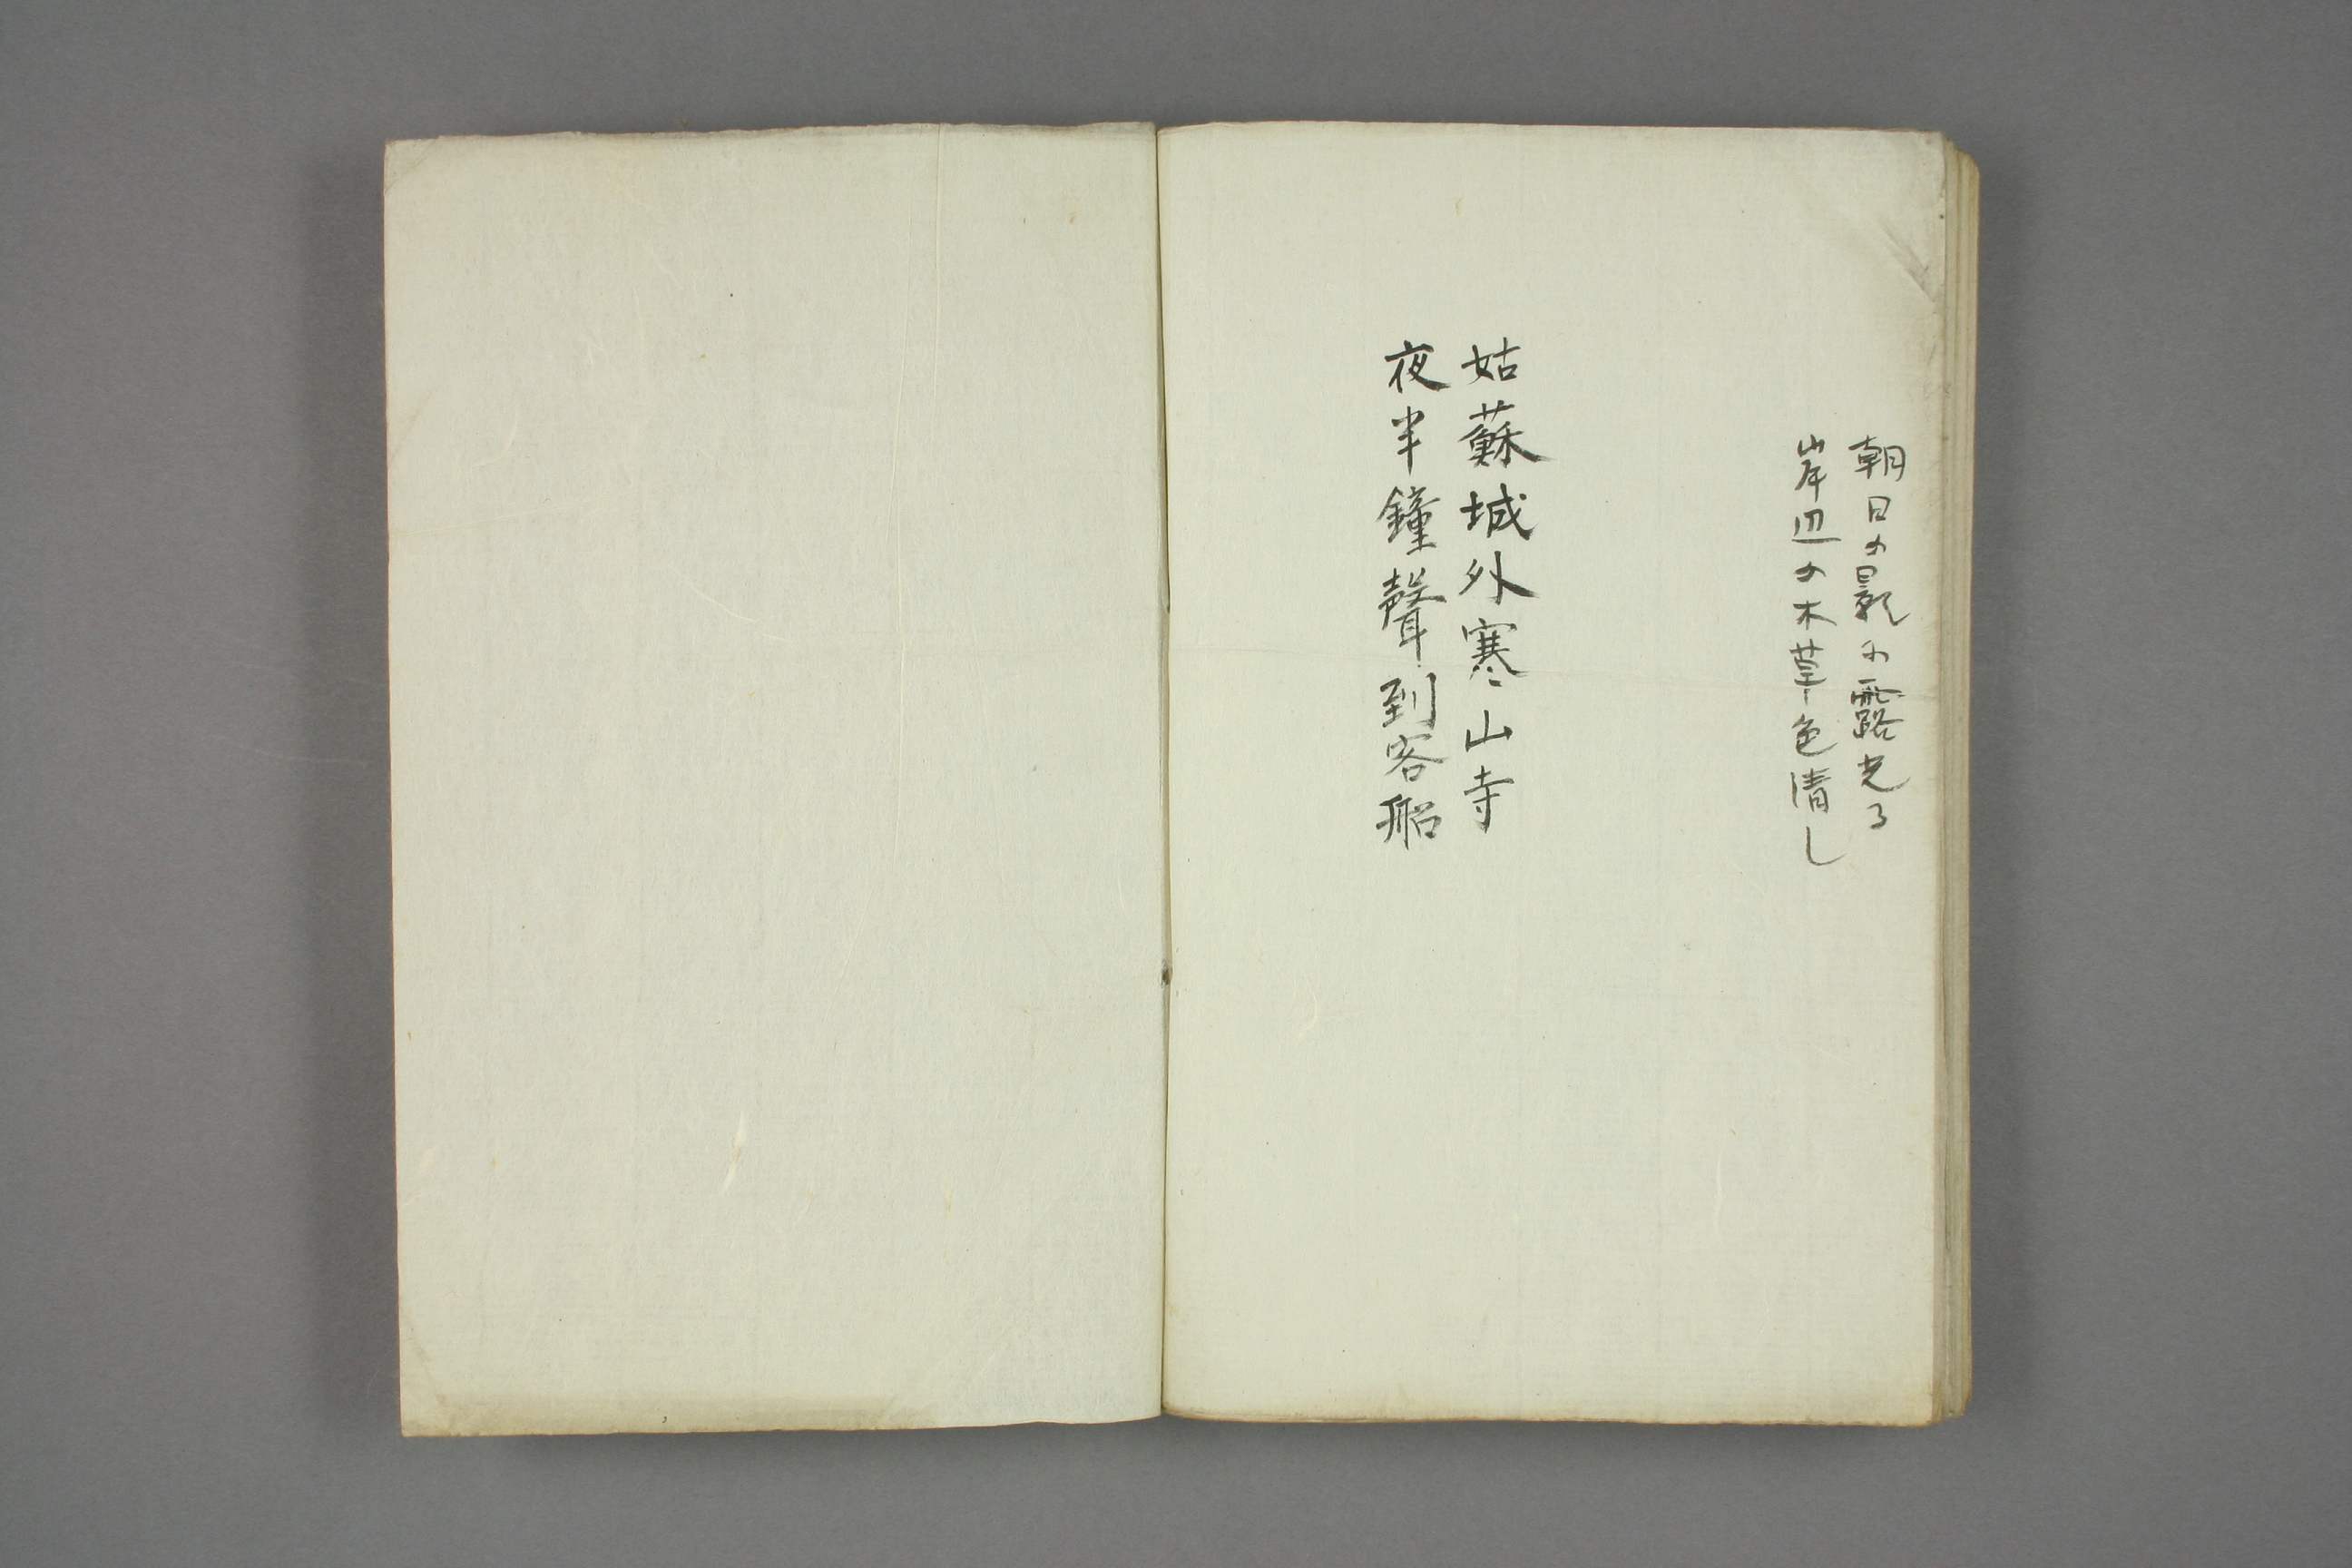 朝日の影に露光る
岸辺の木草色清し
姑蘇城外寒山寺
夜半鐘聲到客船